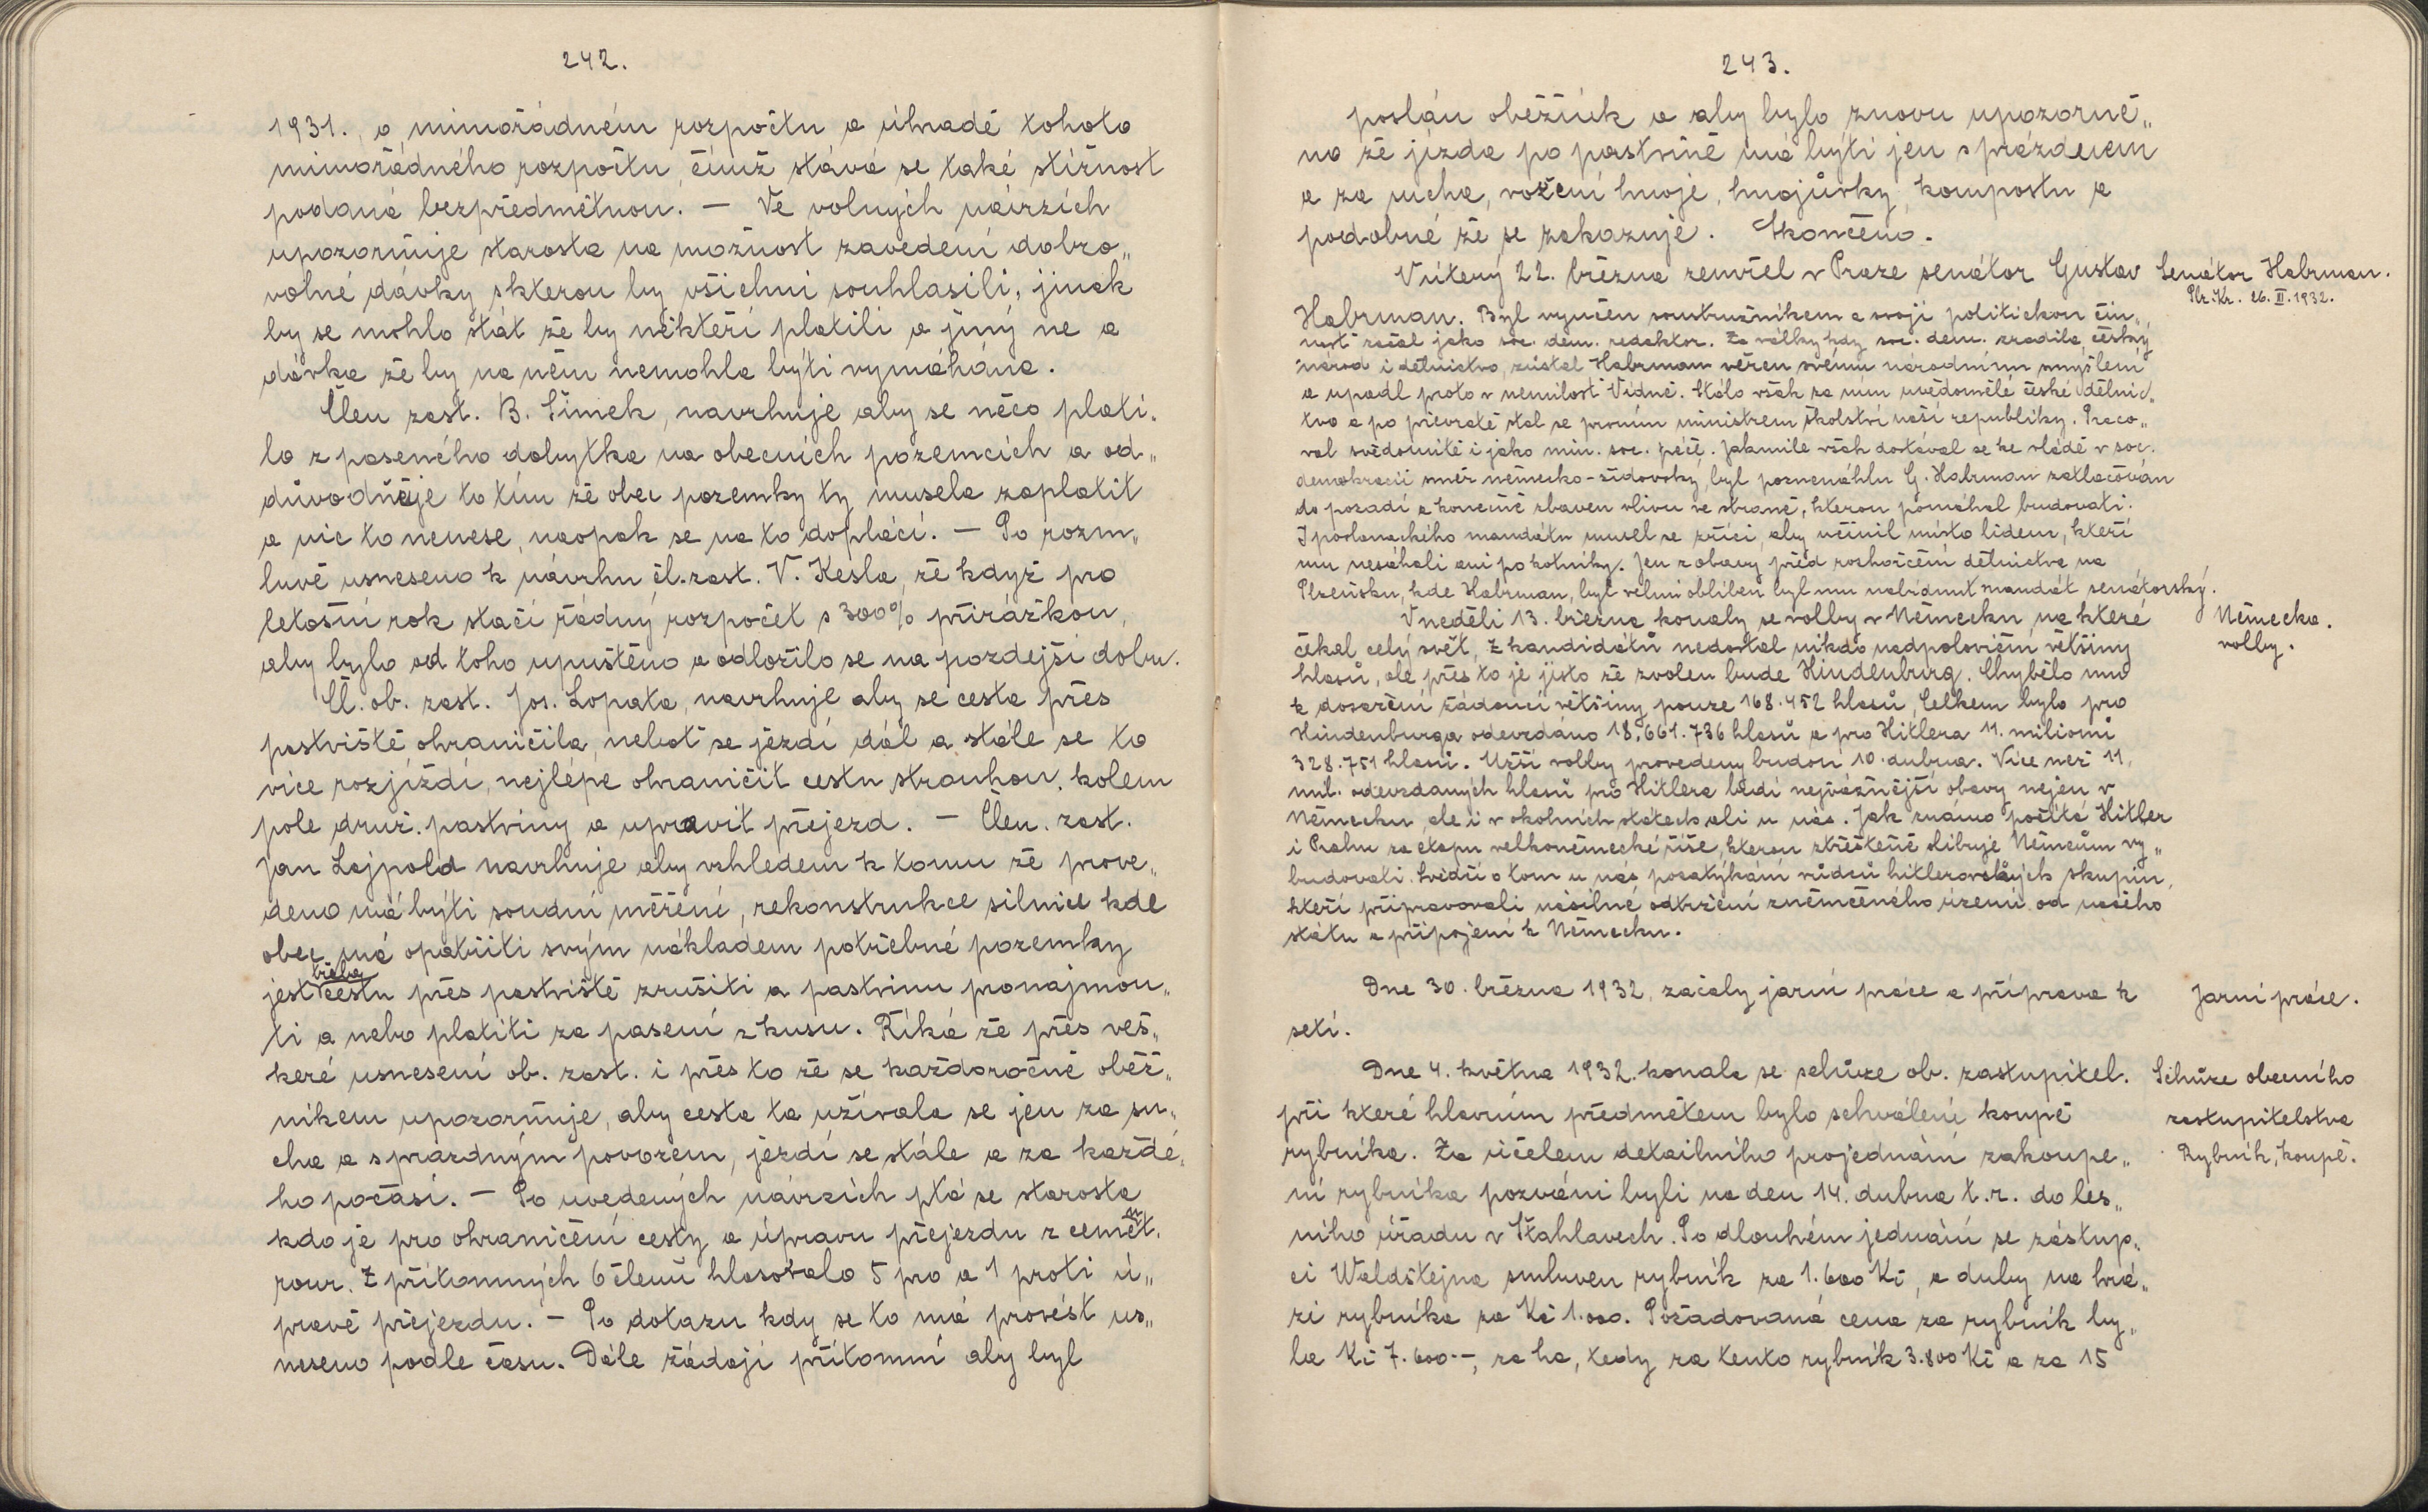 242.
1931. o mimořádném rozpočtu a úhradě tohoto
mimořádného rozpočtu, čímž stává se také stížnost
podaná bezpředmětnou. — Ve volných návrzích
upozorňuje starosta na možnost zavedení dobro„
volné dávky s kterou by všichni souhlasili, jinak
by se mohlo stát že by někteří platili a jiný ne a
dávka že by na něm nemohla býti vymáhána.
Člen zast. B. Šimek, navrhuje aby se něco plati„
lo z paseného dobytka na obecních pozemcích a od„
důvodňuje to tím že obec pozemky ty musela zaplatit
a nic to nenese, naopak se na to doplácí. — Po rozm„
luvě usneseno k návrhu čl. zast. V. Kesla, že když pro
letošní rok stačí řádný rozpočet s 300% přirážkou,
aby bylo od toho upuštěno a odložilo se na pozdejší dobu.
Čl. ob. zast. Jos. Lopata, navrhuje aby se cesta přes
pastviště ohraničila, nebot se jezdí dál a stále se to
více rozjíždí, nejlépe ohraničit cestu strouhou, kolem
pole druž. pastviny a upravit přejezd. — Člen. zast.
Jan Lajpold navrhuje aby vzhledem k tomu že prove„
deno má býti soudní měření, rekonstrukce silnice kde
obec má opatřiti svým nákladem potřebné pozemky
jest třeba cestu přes pastviště zrušiti a pastvinu pronajmou„
ti a nebo platiti za pasení z kusu. Říká že přes veš„
keré usnesení ob. zast. i přes to že se každoročně oběž„
níkem upozorňuje, aby cesta ta užívala se jen za su„
cha a s prazdným povozem, jezdí se stále a za kazdé„
ho počasí. — Po uvedených návrzích ptá se starosta
kdo je pro ohraničení cesty a úpravu přejezdu z cemět.
rour. Z přítomných 6 členů hlasovalo 5 pro a 1 proti ú„
pravě přejezdu. — Po dotazu kdy se to má provést us„
neseno podle času. Dále žádají přítomní aby byl
243.
poslán oběžník a aby bylo znovu upozorně„
no že jízda po pastvině má býti jen s prázdnem
a za sucha, vožení hnoje, hnojůvky, kompostu a
podobné že se zakazuje. Skončeno.
V úterý 22. března zemřel v Praze senátor Gustav
Senátor Habrman.
Plz. Kr. 26. II. 1932.
Habrman. Byl vyučen soustružníkem a svoji politickou čin„
nost začal jako soc. dem. redaktor. Za války kdy soc. dem. zradila český
národ i dělnictvo, zůstal Habrman věren svému národnímu smýšlení
a upadl proto v nemilost Vídně. Stálo však za ním uvědomělé české dělnic„
tvo a po převratě stal se prvním ministrem školství naší republiky. Praco„
val svědomitě i jako min. soc. péče. Jakmile však dostával se ke vládě v soc.
demokracii směr německo-židovský, byl poznenáhlu G. Habrman zatlačován
do pozadí a konečně zbaven vlivu ve straně, kterou pomáhal budovati.
I poslaneckého mandátu musel se zříci, aby učinil místo lidem, kteří
mu nesáhali ani po kotníky. Jen z obavy před rozhořčením dělnictva na
Plzeňsku, kde Habrman, byl velmi oblíben byl mu nabídnut mandát senátorský.
V neděli 13. března konaly se volby v Německu, na které
Německo.
volby.
čekal celý svět. Z kandidátů nedostal nikdo nadpoloviční většiny
hlasů, ale přes to je jisto že zvolen bude Hindenburg. Chybělo mu
k dosažení žádoucí většiny pouze 168.452 hlasů, Celkem bylo pro
Hindenburga odevzdáno 18,661.736 hlasů a pro Hitlera 11. milionů
328.751 hlasů. Užší volby provedeny budou 10. dubna. Více než 11.
mil. odevzdaných hlasů pro Hitlera budí nejvážnější obavy nejen v
Německu, ale i v okolních státech ali u nás. Jak známo počítá Hitler
i Prahu za etapu velkoněmecké říše, kterou ztřeštěně slibuje Němcům vy„
budovati. Svědčí o tom u nás pozatýkání vůdců hitlerovských skupin,
kteří připravovali násilné odtržení zněmčeného území od našeho
státu a připojení k Německu.
Dne 30. března 1932, začaly jarní práce a příprava k
Jarní práce.
setí.
Dne 4. května 1932. konala se schůze ob. zastupitel.
Schůze obecního
zastupitelstva
Rybník, koupě.
při které hlavním předmětem bylo schválení koupě
rybníka. Za účelem detailního projednání zakoupe„
ní rybníka pozváni byli na den 14. dubna t.r. do les„
ního úřadu v Šťahlavech. Po dlouhém jednání se zástup„
ci Waldštejna smluven rybník za 1.600 Kč, a duby na hrá„
zi rybníka za Kč 1.000. Požadovaná cena za rybník by„
la Kč 7.600.-, za ha, tedy za tento rybník 3.800 Kč a za 15